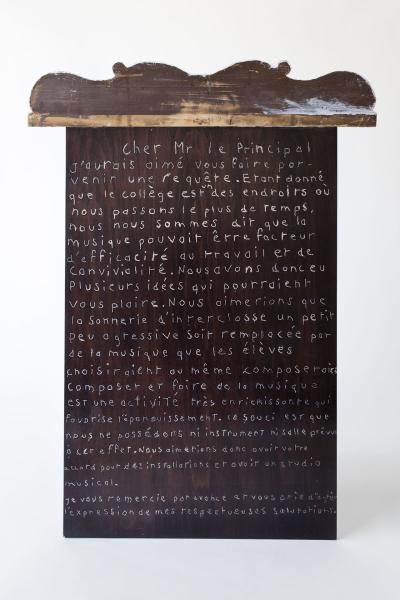 Cher Mr le Principal
j'aurais aimé vous faire par-
venir une requête. Etant donné
que le collège est un des endroits où
nous passons le plus de temps,
nous nous sommes dit que la
musique pouvait être facteur
d'efficacité au travail et de
convivialité. Nous avons donc eu
plusieurs idées qui pourraient
vous plaire. Nous aimerions que
la sonnerie d'interclasse un petit
peu agressive soit remplacée par
de la musique que les élèves
choisiraient ou même composeraient
composer et faire de la musique
est une activité très enrichissante qui
favorise l'épanouissement. Le souci est que
nous ne possédons ni instrument ni salle prévue
à cet effet. Nous aimerions donc avoir votre
accord pour des installations et avoir un studio
musical.
je vous remercie par avance et vous prie d'agréer
l'expression de mes respectueuses salutations